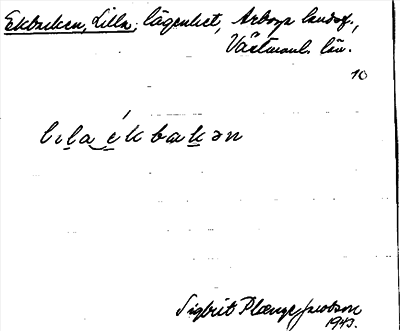 Ekbacken, Lilla, lägenhet, Arboga landsf.,
Västmanl. län.
10
lıla ékbakən
Sigbrit Plænge Jacobson
1943.